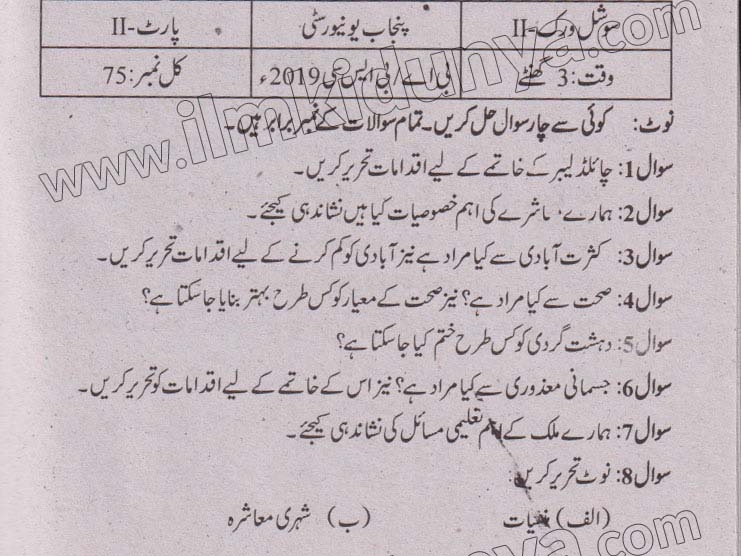 سوشل ورک-II پنجاب یونیورسٹی پارٹ-II
وقت: 3 گھنٹے بی اے/بی ایس سی 2019ء کل نمبر: 75
نوٹ: کوئی سے چار سوال حل کریں۔ تمام سوالات کے نمبر برابر ہیں۔
سوال 1: چائلڈ لیبر کے خاتمے کے لیے اقدامات تحریر کریں۔
سوال 2: ہمارے معاشرے کی اہم خصوصیات کیا ہیں نشاندہی کیجئے۔
سوال 3: کثرت آبادی سے کیا مراد ہے نیز آبادی کو کم کرنے کے لیے اقدامات تحریر کریں۔
سوال 4: صحت سے کیا مراد ہے؟ نیز صحت کے معیار کو کس طرح بہتر بنایا جا سکتا ہے؟
سوال 5: دہشت گردی کو کس طرح ختم کیا جا سکتا ہے؟
سوال 6: جسمانی معذوری سے کیا مراد ہے؟ نیز اس کے خاتمے کے لیے اقدامات کو تحریر کریں۔
سوال 7: ہمارے ملک کے اہم تعلیمی مسائل کی نشاندہی کیجئے۔
سوال 8: نوٹ تحریر کریں
(الف) منشیات (ب) شہری معاشرہ
www.ilmkidunya.com